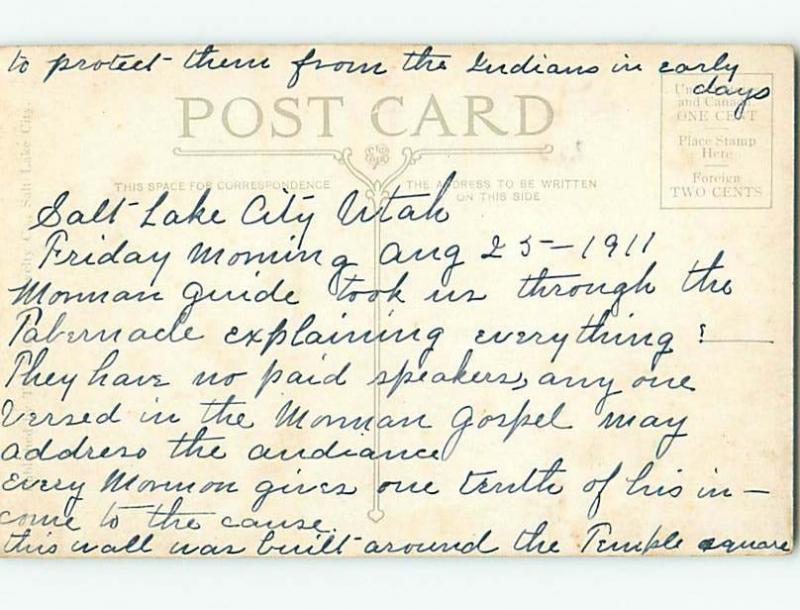 to protect them from the Indians in early
days
POST CARD
and Canada
ONE CENT
Place Stamp
Here
Foreign
TWO CENTS
THIS SPACE FOR CORRESPONDENCE
THE ADDRESS TO BE WRITTEN
ON THIS SIDE
Salt Lake City.
Salt Lake City Utah
Friday Morning Aug 25 - 1911
Morman guide took us through the
Tabernacle explaining everything :
They have no paid speakers, any one
versed in the Morman Gospel may
address the audiance
every Mormon gives one tenth of his in-
come to the cause.
this wall was built around the Temple square